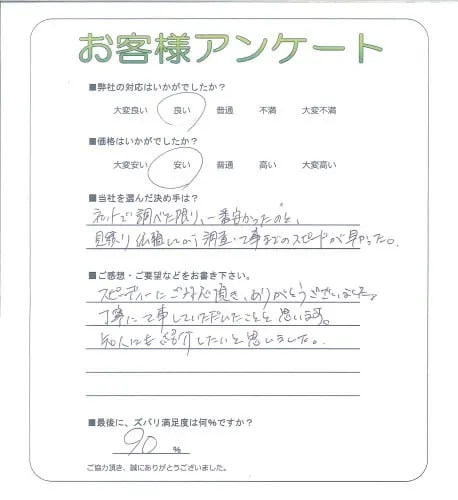 お客様アンケート
■弊社の対応はいかがでしたか？
大変良い 良い 普通 不満 大変不満
■価格はいかがでしたか？
大変安い 安い 普通 高い 大変高い
■当社を選んだ決め手は？
ネットで調べた限り、一番安かったのと、
見積り依頼してから調査・工事までのスピードが早かった。
■ご感想・ご要望などをお書き下さい。
スピーディーにご対応頂き、ありがとうございました。
丁寧に工事していただいたことと思います。
知人にもご紹介したいと思いました。
■最後に、ズバリ満足度は何%ですか？
90 %
ご協力頂き、誠にありがとうございました。